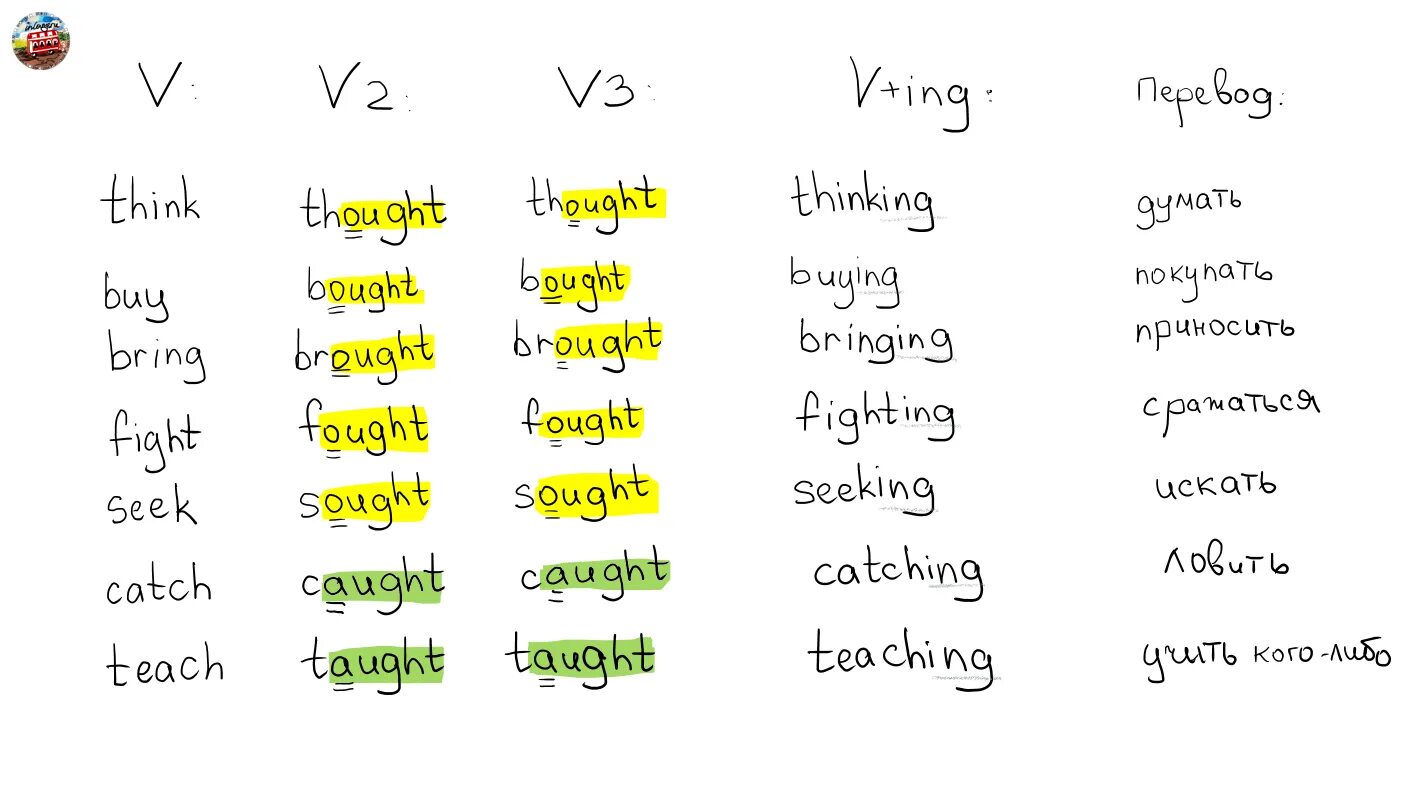 V: V2: V3: V+ing: Перевод:
think thought thought thinking думать
buy bought bought buying покупать
bring brought brought bringing приносить
fight fought fought fighting сражаться
seek sought sought seeking искать
catch caught caught catching ловить
teach taught taught teaching учить кого-либо